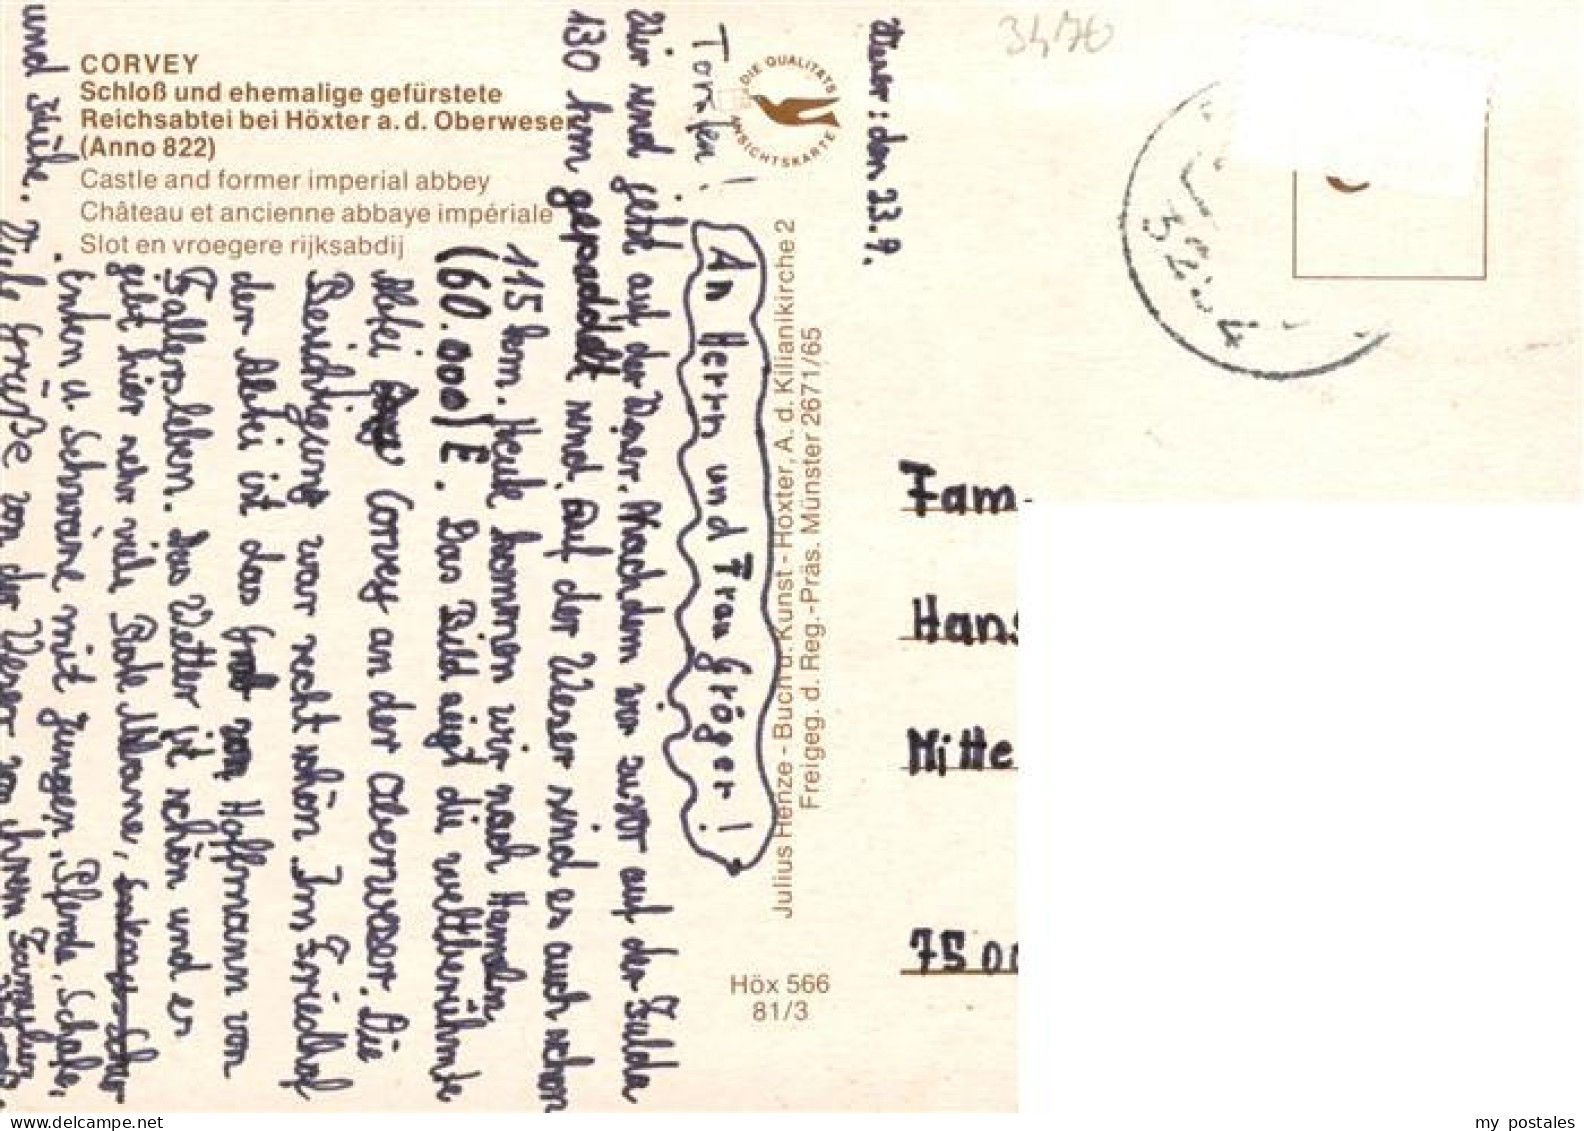 CORVEY
Schloß und ehemalige gefürstete
Reichsabtei bei Höxter a. d. Oberweser
(Anno 822)
Castle and former imperial abbey
Château et ancienne abbaye impériale
Slot en vroegere rijksabdij
DIE QUALITÄTS
ANSICHTSKARTE
3470
Weser: den 23.9.
An Herrn und Frau Gröger!
Wir sind jetzt auf der Weser. Nachdem wir zuvor auf der Fulda
130 km gepaddelt sind, auf der Weser sind es auch schon
115 km. Heute kommen wir nach Hameln
(60.000)E. Das Bild zeigt die weltberühmte
Abtei Corvey an der Oberweser. Die
Besichtigung war recht schön. Im Friedhof
der Abtei ist das Grab von Hoffmann von
Fallersleben. Das Wetter ist schön und es
gibt hier sehr viele
Enten u. Schwäne mit Jungen, Pferde, Schafe,
und Kühe. Viele Grüße von der Weser von Ihrem
Julius Henze - Buch u. Kunst - Höxter, A. d. Kilianikirche 2
Freigeg. d. Reg.-Präs. Münster 2671/65
Höx 566
81/3
Fam.
Hans
Mitte
7500
my postales